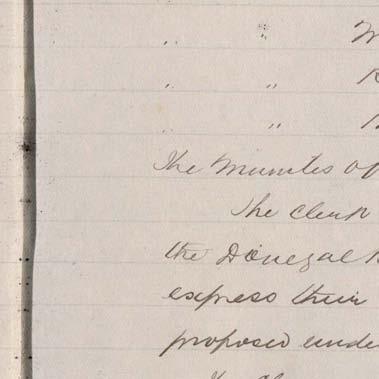 " "
" "
" "
The Minutes of
The Clerk
the Donegal
express their
proposed unde